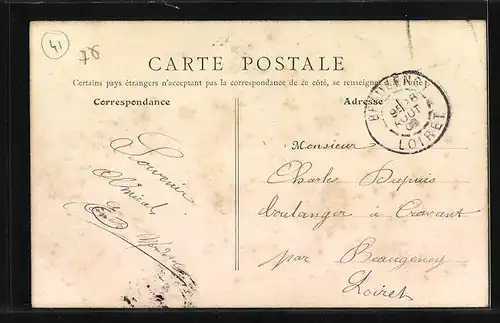 41
78
CARTE POSTALE
Certains pays étrangers n'acceptant pas la correspondance de ce côté, se renseigner à la Poste)
Correspondance
Adresse
LOIRET
Souvenir
Monsieur
Charles Dupuis
boulanger à Cravant
par Beaugency
Loiret